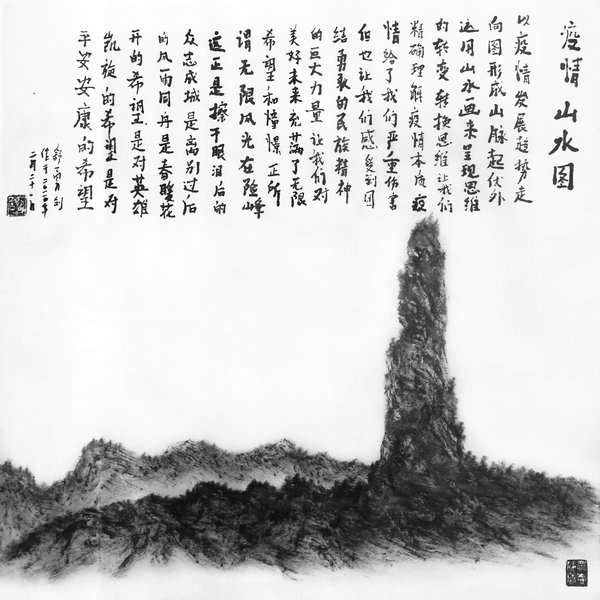 疫情山水图
以疫情发展趋势走
向图形成山脉起伏外
运用山水画来呈现思维
的转变转换思维让我们
精确理解疫情本质疫
情给了我们严重伤害
但也让我们感受到团
结勇敢的民族精神
的巨大力量让我们对
美好未来充满了无限
希望和憧憬正所
谓无限风光在险峰
这正是擦干眼泪后的
众志成城是离别过后
的风雨同舟是春暖花
开的希望是对英雄
凯旋的希望是对
平安安康的希望
舒勇创
作于二〇二〇年